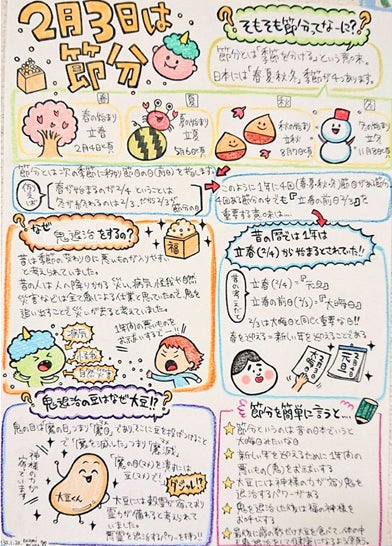 2月3日は
節分
そもそも節分てなーに?
節分とは「季節を分ける」という意味。
日本には「春夏秋冬」季節が4つあります。
春
春の始まり
立春
2月4日ごろ
夏
夏の始まり
立夏
5月6日ごろ
秋
秋の始まり
立秋
8月7日ごろ
冬
冬の始まり
立冬
11月8日ごろ
節分とは次の季節に移り変わる節目の日(前日)を指します。
例えば
春が始まるのが2/4ということは
冬が終わるのは2/3。だから2/3が
節分の日
このように1年に4回(春夏秋冬)節目がある
4回ある節分の中でも『立春の前日2/3』を
重要する意味は…
なぜ
鬼退治をするの?
福
昔は季節の変わり目に悪いものが入りやすい
と考えられていました。
昔の人は人へ降りかかる災い、病気、怪我や自然
災害などは全て鬼による仕業と思っていたので、鬼を
追い出すことで災いが去ると考えていました。
病気
怪我
自然災害
1年間の悪いものを
お払いするぞー!!
昔の暦では1年は
立春(2/4)から始まるとされていた!!
昔の考えだと
立春(2/4)=『元旦』
立春の前日(2/3)=『大晦日』
2/3は大晦日と同じで重要な日!!
春を迎える=新しい年を迎えることである
2月3日
大晦日
2月4日
元旦
鬼退治の豆はなぜ大豆!?
神様の力が
宿ってます
大豆くん
グジョー!?
大豆には穀霊が宿っており
霊力が備わると考えられて
いました。
悪霊を退治するパワーを持つ!!
節分を簡単に言うと…
節分というのは昔の日本でいうと
大晦日みたいな日
新しい年を迎えるために1年間の
悪いもの(鬼)をお払いする
大豆には神様の力が宿り鬼を
退治するパワーがある
鬼を退治した後は福の神様を
お呼びする